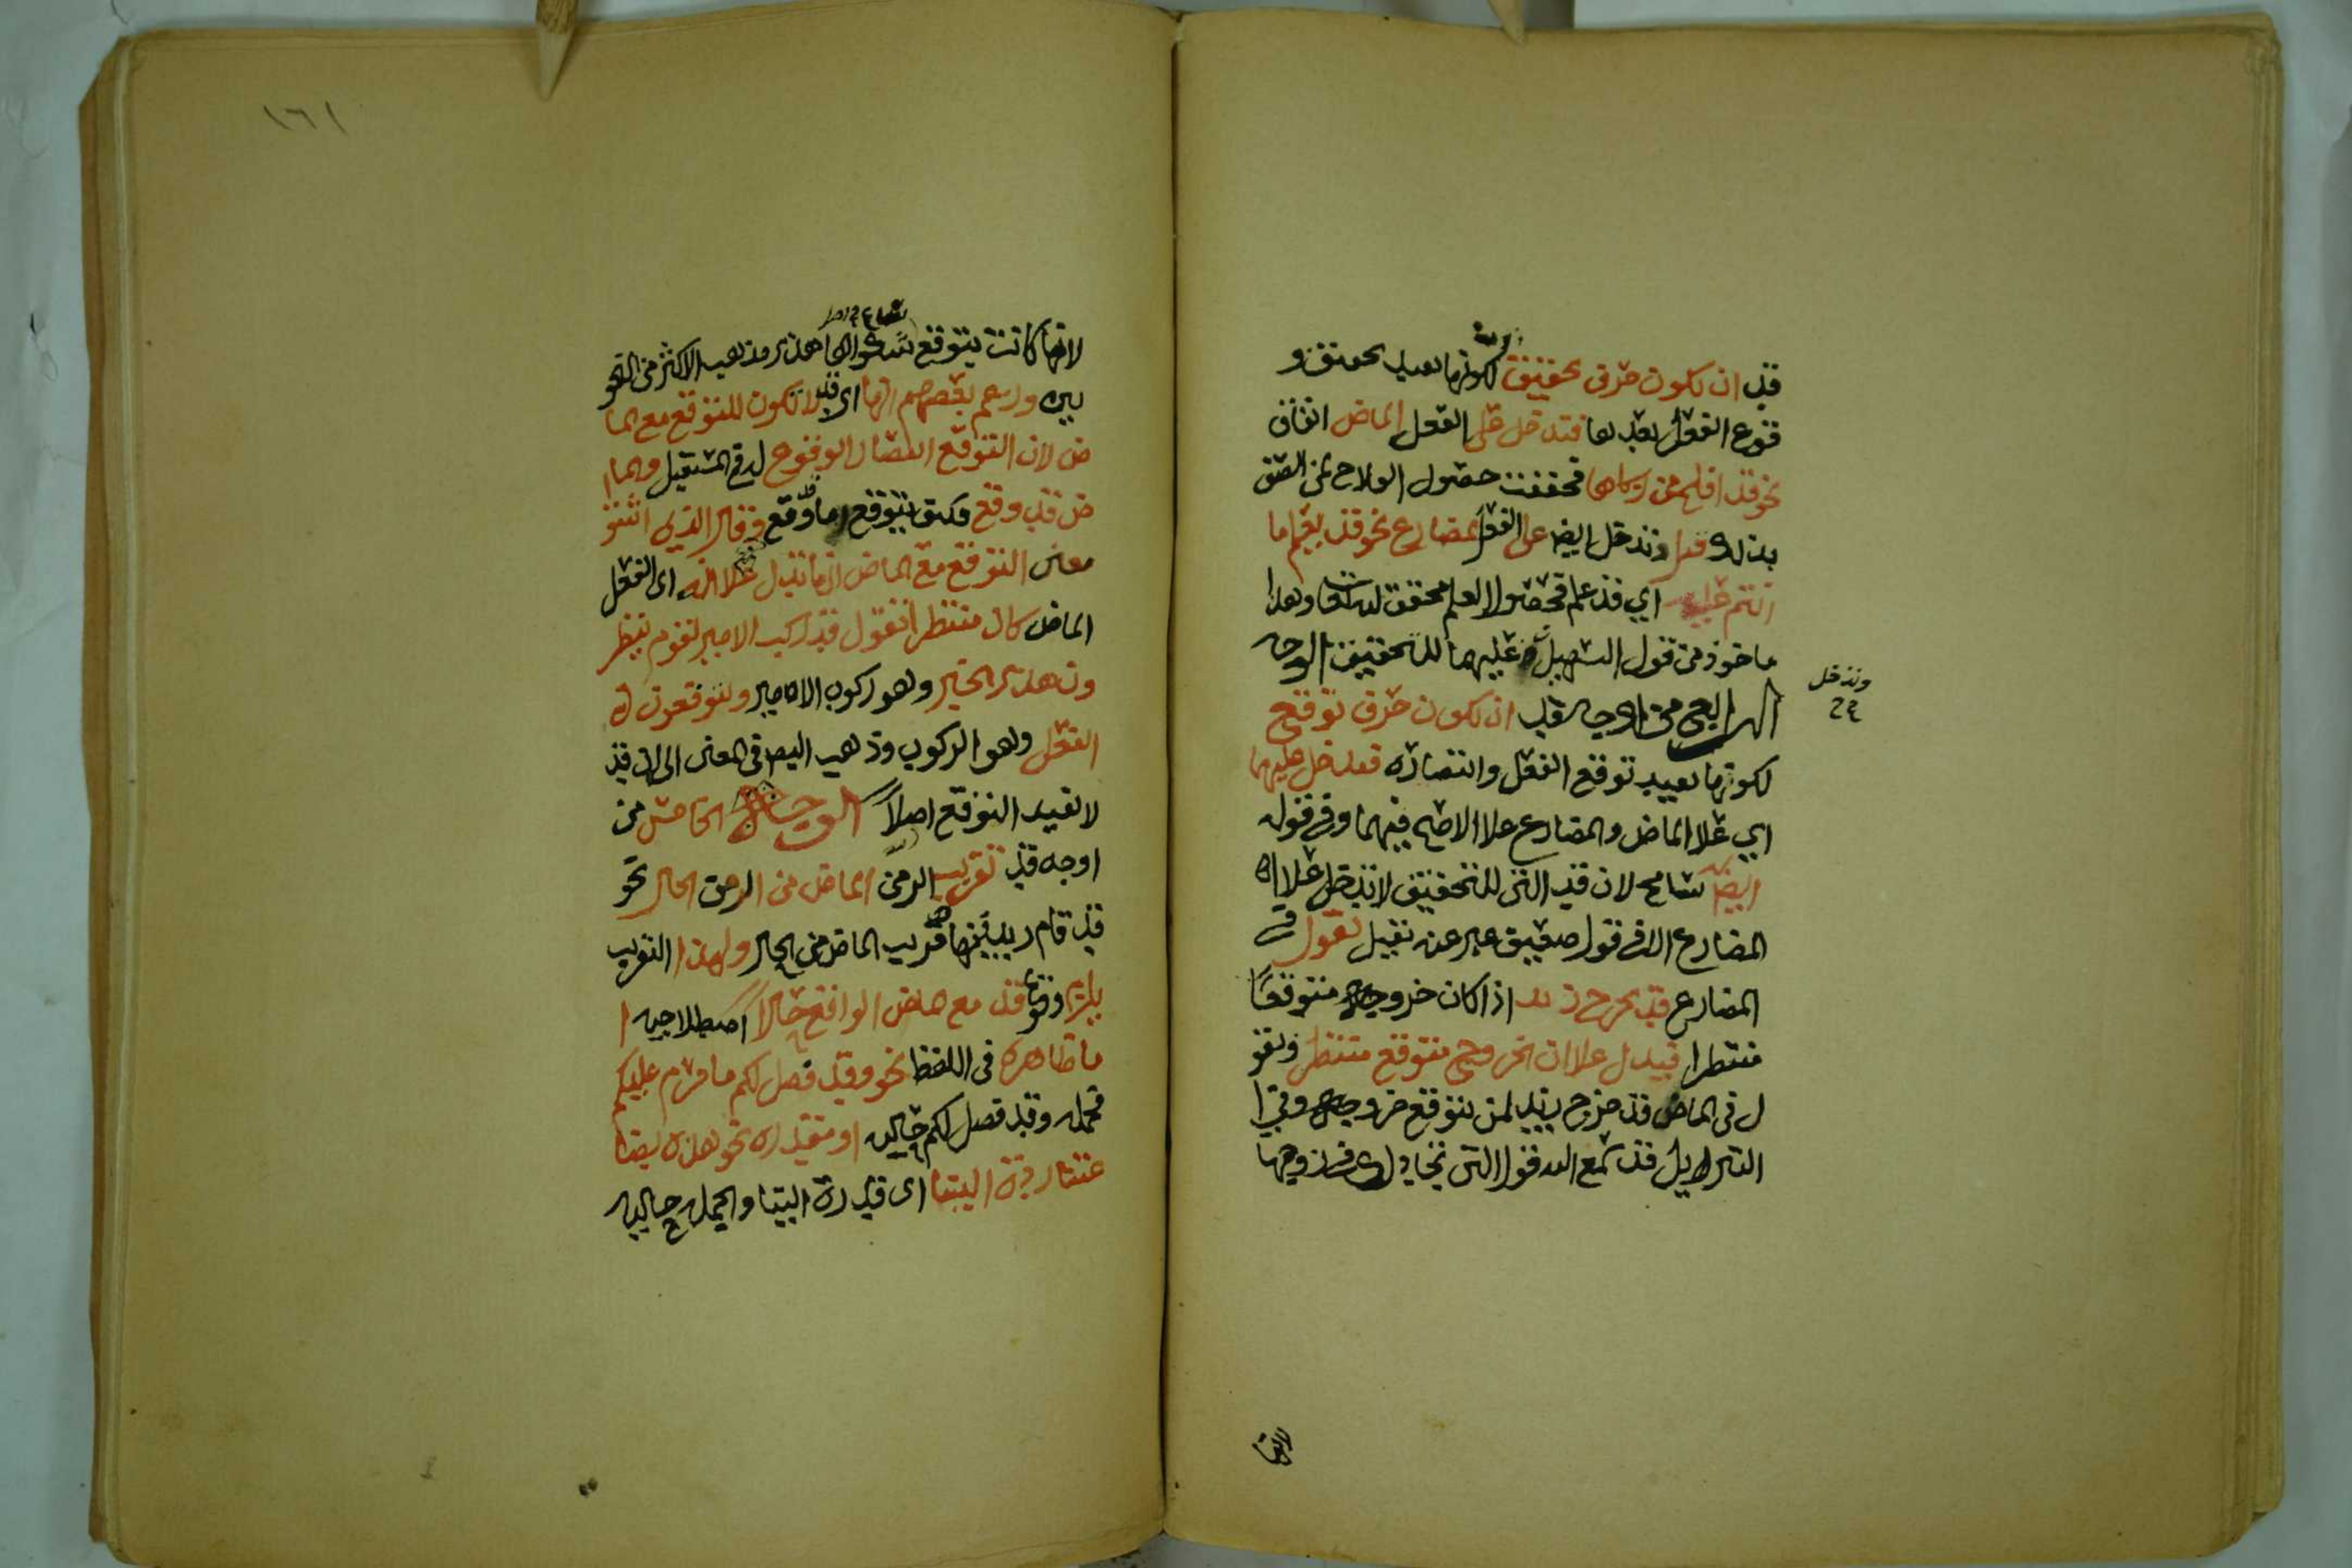 قد ان تكون حرف تحقيق لكونها تفيد تحقيق و
قوع الفعل بعدها فتدخل على الفعل الماضى اتفاقا
نحو قد افلح من زكاها فحققت حصول الفلاح لمن اتصف
بذلك وتدخل ايضا على الفعل المضارع نحو قد يعلم ما
انتم عليه اي قد علم فحصول العلم محقق لله تعا وهذا
ماخوذ من قول التسهيل وعليهما للتحقيق الوجه
الرابع من اوجه قد ان تكون حرف توقع
لكونها تفيد توقع الفعل وانتضاره فتدخل عليهما
اي علا الماضى والمضارع علا الاصح فيهما وفي قوله
ايضا تسامح لان قد التى للتحقيق لا تدخل علا
المضارع الا في قول ضعيف عبر عنه بقيل تقول في
المضارع قد يخرج زيد اذا كان خروجه متوقعا
منتطرا فيدل علا ان الخروج متوقع منتظر وتقو
ل فى الماضى قد خرج زيد لمن يتوقع خروجه وفى ا
التنزيل قد سمع الله قول التى تجادلك في زوجها
وتدخل
لانها
١٦١
لانها كانت يتوقع شكواها هذا مذهب الاكثر من النحو
يين وزعم بعضهم انها اى قد لا تكون للتوقع مع الما
ضى لان التوقع انتضار الوقوع في المستقبل والما
ضى قد وقع فكيف يتوقع ما وقع وقال الذي اثبتو
معنى التوقع مع الماضى انها تدل علا انه اى الفعل
الماضى كان منتظرا تقول قد ركب الامير لقوم ينظر
ون هذا الخبر وهو ركوب الامير ويتوقعون
الفعل وهو الركوب وذهب المص فى المغنى الى ان قد
لا تفيد التوقع اصلا الوجه الخامس من
اوجه قد تقريب الزمن الماضى من الزمن الحال نحو
قد قام زيد قريب الماضى من الحال ولهذا التقريب
يلزم وقوع قد مع الماضى الواقع حالا اصطلاحيه ا
ما ظاهره فى اللفظ نحو وقد فصل لكم ما حرم عليكم
فجمله وقد فصل لكم حاليه او مقدره نحو هذه بضا
عتنا ردت الينا اى قد ردت الينا والجمله حاليه